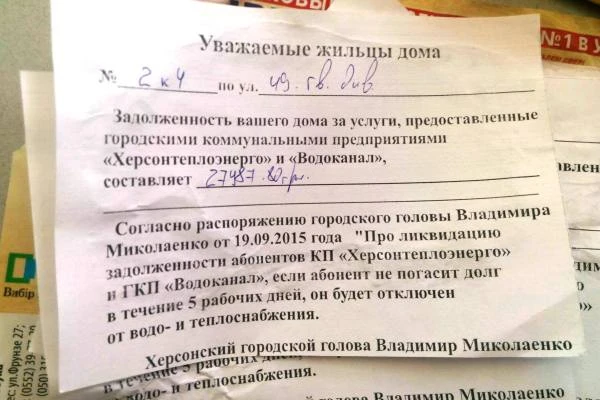 Уважаемые жильцы дома
№ 2 к 4 по ул. 49. гв. див.
Задолженность вашего дома за услуги, предоставленные
городскими коммунальными предприятиями
«Херсонтеплоэнерго» и «Водоканал»,
составляет 27987.80 грн.
Согласно распоряжению городского головы Владимира
Миколаенко от 19.09.2015 года "Про ликвидацию
задолженности абонентов КП «Херсонтеплоэнерго»
и ГКП «Водоканал», если абонент не погасит долг
в течение 5 рабочих дней, он будет отключен
от водо- и теплоснабжения.
Херсонский городской голова Владимир Миколаенко
в течение 5 рабочих дней,
от водо- и теплоснабжения.
городской голова Владимир Миколаенко
№1 В У
Вибір
ул.Фрунзе 27;
(0552) 39
(050)